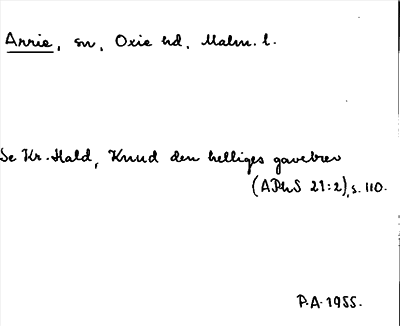 Arrie, sn, Oxie hd, Malm. l.
Se Kr. Hald, Knud den helliges gavebrev
(APhS 21:2), s. 110.
P.A. 1955.